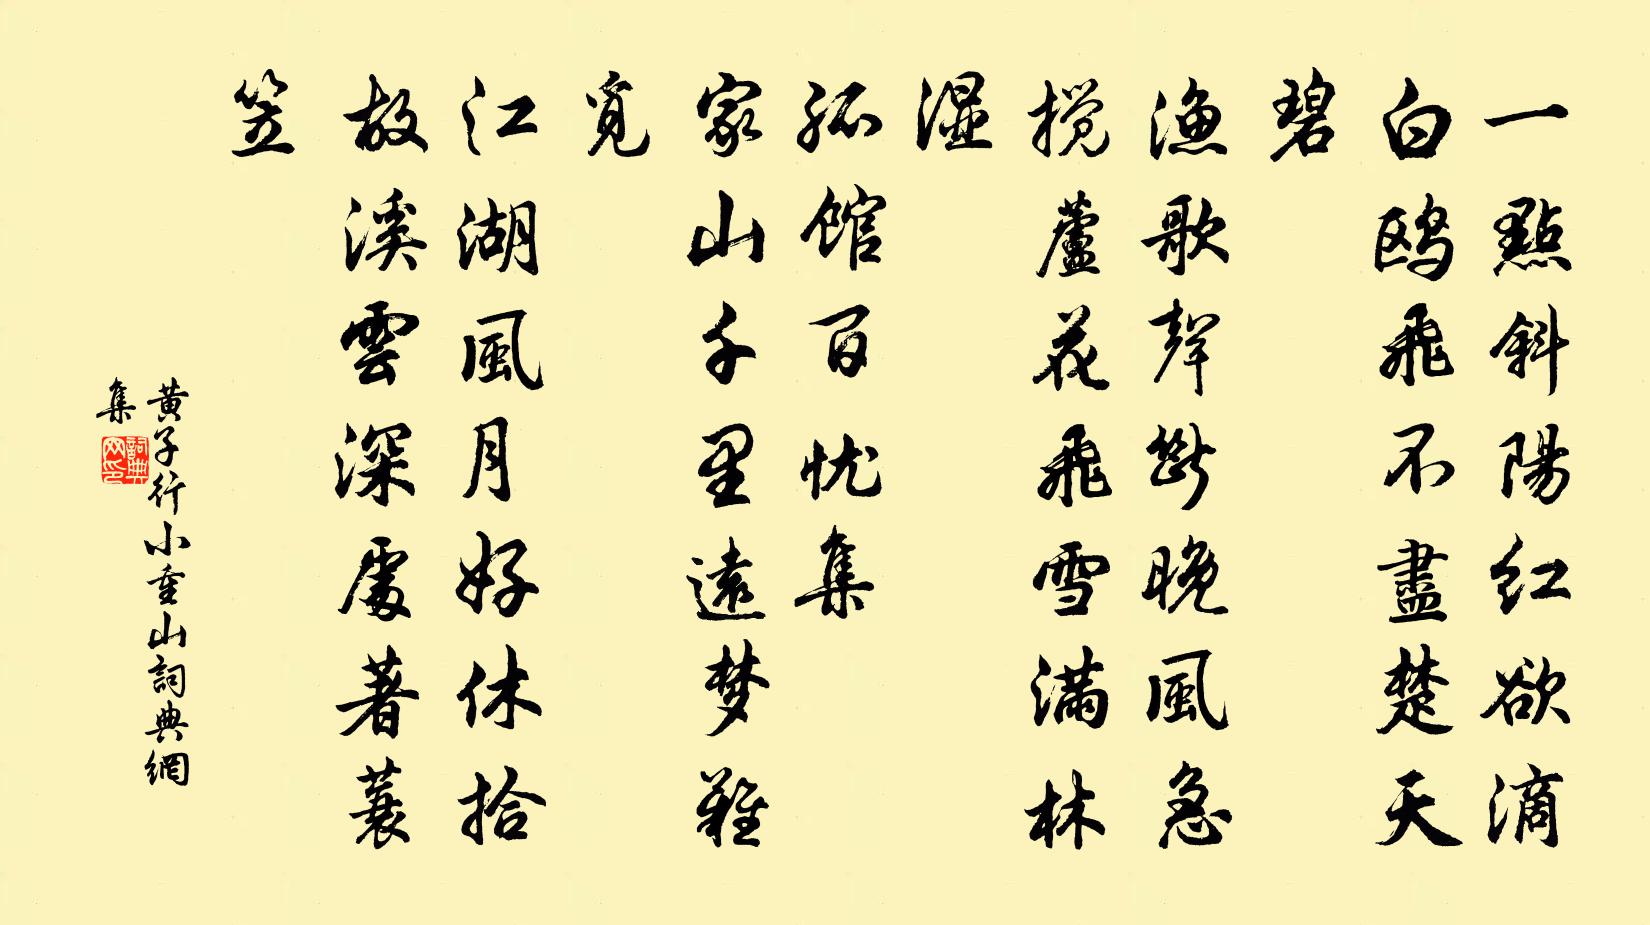 一點斜陽紅欲滴
白鸥飛不盡楚天
碧
漁歌聲斷晚風急
攪蘆花飛雪滿林
濕
孤館百忧集
家山千里遠梦難
覓
江湖風月好休拾
故溪雲深處著蓑
笠
黄子行小重山詞典網
集
詞典網印